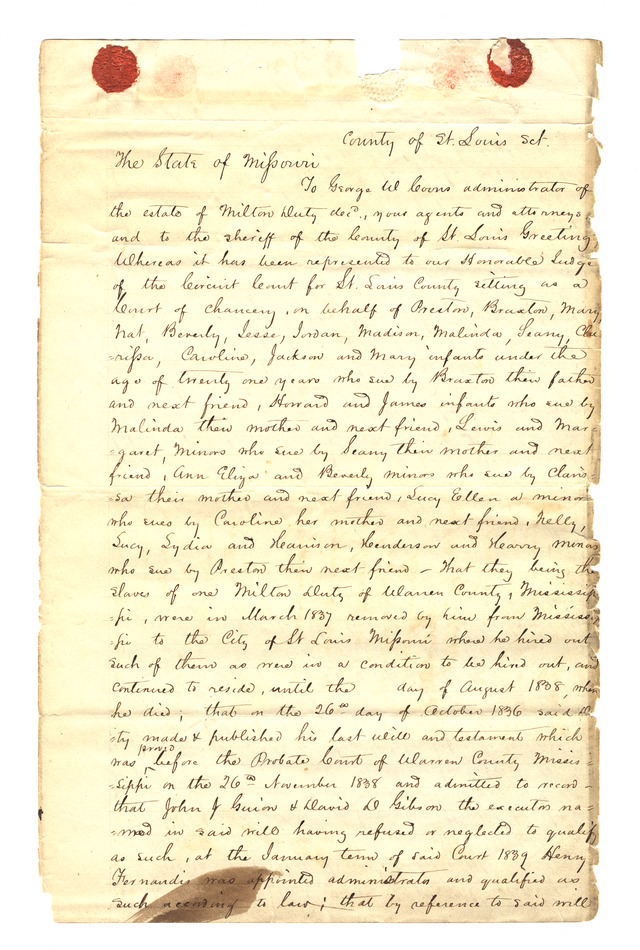 County of St. Louis Sct.
The State of Missouri
To George W Coons administrator of
the estate of Milton Duty decd., your agents and attorneys
and to the sheriff of the County of St. Louis Greeting
Whereas it has been represented to our Honorable Judge
of the Circuit Court for St. Louis County sitting as a
Court of Chancery, on behalf of Preston, Braxton, Mary,
Nat, Beverly, Jesse, Jordan, Madison, Malinda, Seany, Cla-
=rissa, Caroline, Jackson and Mary infants under the
age of twenty one years who sue by Braxton their father
and next friend, Howard and James infants who sue by
Malinda their mother and next friend, Lewis and Mar=
=garet, minors who sue by Seany their mother and next
friend, Ann Eliza and Beverly minors who sue by Claris
=sa their mother and next friend, Lucy Ellen a minor
who sues by Caroline her mother and next friend, Nelly,
Lucy, Lydia and Harrison, Henderson and Harry minors
who sue by Preston their next friend – That they being the
slaves of one Milton Duty of Warren County, Mississip
=pi, were in March 1837 removed by him from Mississip
=pi to the City of St Louis Missouri where he hired out
such of them as were in a condition to be hired out, and
continued to reside, until the day of August 1838, when
he died; that on the 26th day of October 1836 said Du
=ty made & published his last will and testament which
was proved before the Probate Court of Warren County Missis=
=sippi on the 26th November 1838 and admitted to record –
that John J Guion & David D Gibson the executors na=
=med in said will having refused or neglected to qualify
as such, at the January term of said Court 1839 Henry
Fernandis was appointed administrator and qualified as
such according to law; that by reference to said will